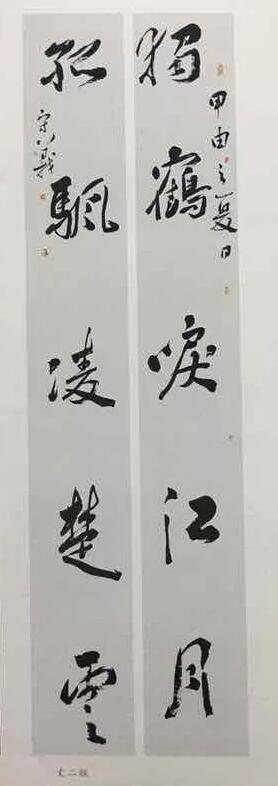 獨鶴唳江月
甲申之夏日
孤颿凌楚雲
丈二联